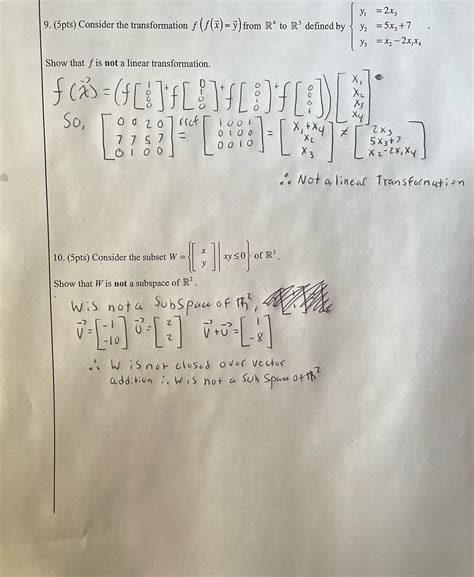 9. (5pts) Consider the transformation f (f(x⃗) = y⃗) from ℝ⁴ to ℝ³ defined by { y₁ = 2x₃
y₂ = 5x₃ + 7
y₃ = x₂ − 2x₁x₄ .
Show that f is not a linear transformation.
f(x⃗) = (f[1 0 0 0] + f[0 1 0 0] + f[0 0 1 0] + f[0 0 0 1]) [x₁ x₂ x₃ x₄]
So, [0 0 2 0
7 7 5 7
0 1 0 0] rref = [1 0 0 1
0 1 0 0
0 0 1 0] = [x₁+x₄
x₂
x₃] ≠ [2x₃
5x₃+7
x₂-2x₁x₄]
∴ Not a linear Transformation
10. (5pts) Consider the subset W = {[x y] | xy ≤ 0} of ℝ².
Show that W is not a subspace of ℝ².
W is not a subspace of ℝ²,
V⃗ = [-1 -10] U⃗ = [2 2] V⃗+U⃗ = [1 -8]
∴ W is not closed over vector
addition ∴ W is not a sub space of ℝ²